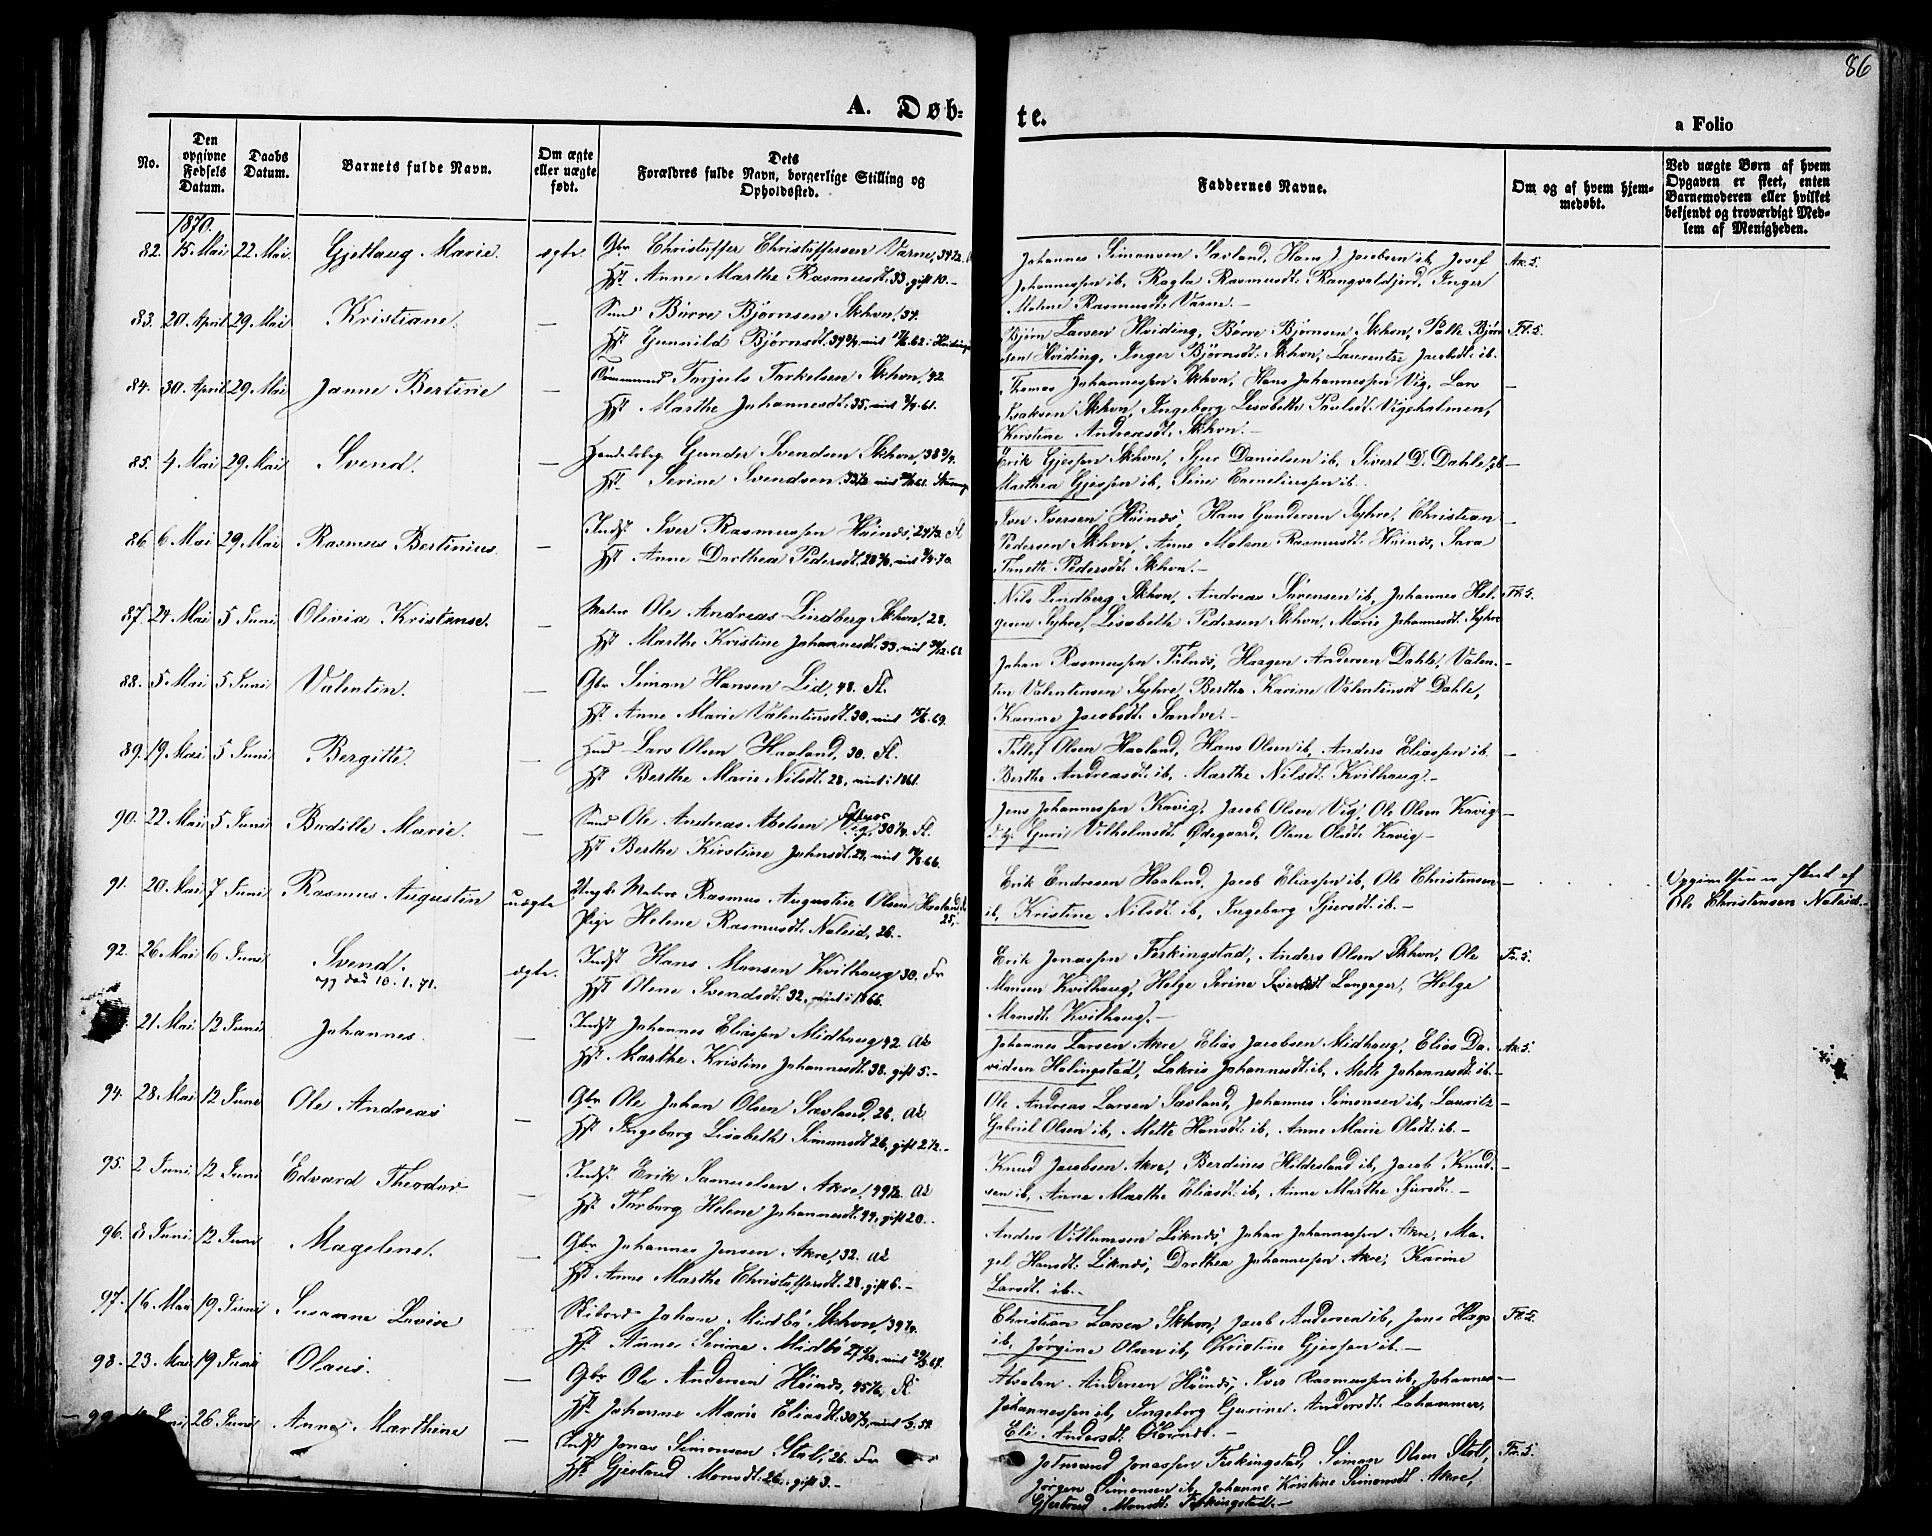 86
A. Døbte.
a Folio
No.
Den opgivne Fødsels Datum.
Daabs Datum.
Barnets fulde Navn.
Om ægte eller uægte født.
Dets Forældres fulde Navn, borgerlige Stilling og Opholdssted.
Faddernes Navne.
Om og af hvem hjemmedøbt.
Ved uægte Børn af hvem Opgaven er skeet, enten Barnemoderen eller hvilket bekjendt og troværdigt Medlem af Menigheden.
1870.
82. 15 Mai 22 Mai. Gjetlaug Marie. ægte. Gbr Christoffer Christoffersen Varne, 34½.
Hst. Anne Marthe Rasmusdt. 33, gift 10.-
Johannes Simonsen Sævland, Hans J. Jacobsen ib, Josef
Johannessen ib, Ragla Rasmusdt. Rangvaldjord, Inger
Malene Rasmusdt. Varne.-
Ak. 5.
83. 20 April 29 Mai Kristiane. — Smed Børre Bjørnsen Skhvn, 34.
Hst. Gunnild Bjørnsdt. 34¾, viet
Bjørn Larsen Hviding, Børre Bjørnsen Skhvn, Palle Bjørn
sen Hviding, Inger Bjørnsdt. Skhvn, Laurentze Jacobdt. ib.
Fl. 5.
84. 30. April 29 Mai Janne Bertine — Tømmermd Torjuls Torkelsen Skhvn, 42
Hst Marthe Johannesdt. 35, viet 61.
Thomas Johannessen Skhvn, Hans Johannessen Vig, Lars
Isaksen Skhvn, Ingeborg Lisabeth Paulsdt. Vigeholmen,
Kirstine Andreasdt. Skhvn.-
85. 4 Mai 29 Mai Svend. — Gunder Svendsen Skhvn, 38¾.
Hst. Serine Svendsen, viet
Erik Gjessen Skhvn, Sjur Danielsen ib, Sivert D. Dahle, ib
Marthea Gjessen ib, Sine Corneliussen ib.
86. 6 Mai 29 Mai Rasmus Bertinius. — Indst Iver Rasmussen Høines, 24½ Fl
Hst Anne Dorthea Pedersdt. 28, viet 70.
Iver Iversen Høines, Hans Gundersen Syhre, Christian
Pedersen Skhvn, Anne Malene Rasmusdt. Høines, Sara
Tanette Pedersdt. Skhvn.-
87. 24 Mai 5 Juni Olivia Kristense. — Matros Ole Andreas Lindberg Skhvn, 28.
Hst. Marthe Kristine Johannesdt. 33, viet
Nils Lindberg Skhvn, Andreas Sørensen ib, Johannes Hel-
gesen Syhre, Lisabeth Pedersen Skhvn, Marie Johannesdt. Syhre
Fl. 5.
88. 5 Mai 5 Juni Valentin. — Gbr Simon Hansen Lid, 48. Fl.
Hst. Anne Marie Valentinsdt. 30, viet 69.
Johan Rasmussen Falnes, Haagen Andersen Dahle, Valen-
tin Valentinsen Syhre, Berthe Karine Valentinsdt Dahle,
Karine Jacobsdt. Sandve.-
89. 19 Mai 5 Juni Bergitte. — Lars Olsen Haaland, 30. Fl.
Hst Berthe Marie Nilsdt. 28, viet i 1861.
Tollef Olsen Haaland, Hans Olsen ib, Anders Eliassen ib.
Berthe Andreasdt. ib, Marthe Nilsdt. Kvilhaug.-
90. 22 Mai 5 Juni Bodille Marie. — Smed Ole Andreas Abelsen Vig, 30¼. Fl.
Hst Berthe Kirstine Johnsdt. 29, viet 66.
Jens Johannessen Kavig, Jacob Olsen Vig, Ole Olsen Kavig
Guri Vilhelmsdt. Ødegaard, Olene Olsdt. Kavig-
91. 20 Mai 7 Juni Rasmus Augustin uægte Ungk. Matros Rasmus Augustin Olsen Haaland 25,-
Pige Helene Rasmusdt. Naleid, 26.-
Erik Endresen Haaland, Jacob Eliassen ib, Ole Christensen
ib, Kristine Nilsdt. ib, Ingeborg Sjursdt. ib.-
Opgivelsen er skeet af
Ole Christensen Naleid.-
92. 26 Mai 6 Juni Svend. ægte. Indst Hans Monsen Kvilhaug 30. Fr
og død 10.1.71.
Hst Olene Svendsdt. 32, viet i 1866.
Erik Jonassen Ferkingstad, Anders Olsen Skhvn, Ole
Monsen Kvilhaug, Helge Serine Sivertsdt Langager, Helge
Monsdt. Kvilhaug.-
Fr. 5.
21 Mai 12 Juni Johannes. — Indst Johannes Eliassen Midhaug 42. Ak
Hst. Marthe Kristine Johannesdt. 38. gift 5.-
Johannes Larsen Akre, Elias Jacobsen Midhaug, Elias Da-
vidsen Hølingstad, Lakris Johannesdt. ib, Mette Johannesdt. ib.-
Ak. 5.
94. 28 Mai 12 Juni Ole Andreas — Gbr Ole Johan Olsen Sævland, 26. Ak
Hst Ingeborg Lisabeth Simonsdt 26, gift 2½.-
Ole Andreas Larsen Sævland, Johannes Simonsen ib, Lauritz
Gabriel Olsen ib, Mette Hansdt. ib, Anne Marie Olsdt. ib.-
95. 2 Juni 12 Juni Edvard Theodor — Indst. Erik Samuelsen Akre, 49½. Ak
Hst. Torborg Helene Johannesdt. 44, gift 20.-
Knud Jacobsen Akre, Berdines Hildesland ib, Jacob Knud-
sen ib, Anne Marthe Eliasdt. ib, Anne Marthe Sjursdt.-
96. 8 Juni 12 Juni Magelene. — Gbr Johannes Jensen Akre, 32. Ak
Hst Anne Marthe Christoffersdt. 28, gift 6.-
Anders Villumsen Liknes, Johan Johannessen Akre, Ma-
gel Hansdt. Liknes, Dorthea Johannessen Akre, Karine
Larsdt. ib.-
97. 16 Mai 19 Juni Susanne Lovise — Johan Midbø Skhvn, 39¼.
Hst. Anne Serine Midbø, viet
Christian Larsen Skhvn, Jacob Andersen ib, Jens Hage
ib, Jørgine Olsen ib, Kristine Gjessen ib.-
Fl. 5.
98. 23 Mai 19 Juni Olaus. — Gbr Ole Andersen Høines, 45½, Fl
Hst. Johanne Marie Eliasdt. 30, viet
Absalon Andersen Høines, Iver Rasmussen ib, Johannes
Johannessen ib, Ingeborg Gurine Andersdt. Lahammer,
Eli Andersdt. Høines.-
99. Juni 26 Juni Anne Marthine — Indst Jonas Simonsen Stol, 26. Fr
Hst. Gjertrud Monsdt. 26, gift 3.-
Jonassen Ferkingstad, Simon Olsen Stol,
Jørgen Simonsen ib, Johanne Kirstine Simonsdt. Akre,
Gjertrud Monsdt. Ferkingstad.-
Fr. 5.